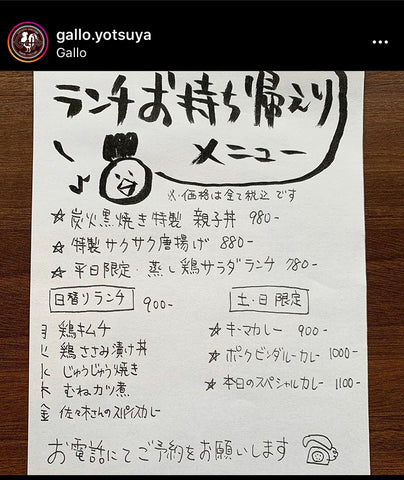 gallo.yotsuya
Gallo
ランチお持ち帰り
メニュー
※価格は全て税込です
☆ 炭火黒焼き特製 親子丼 980-
☆ 特製サクサク唐揚げ 880-
☆ 平日限定・蒸し鶏サラダランチ 780-
日替りランチ 900-
月 鶏キムチ
火 鶏ささみ漬け丼
水 じゅうじゅう焼き
木 むねカツ煮
金 佐々木さんのスパイスカレー
土・日限定
☆ キーマカレー 900-
☆ ポークビンダルーカレー 1000-
☆ 本日のスペシャルカレー 1100-
お電話にてご予約をお願いします